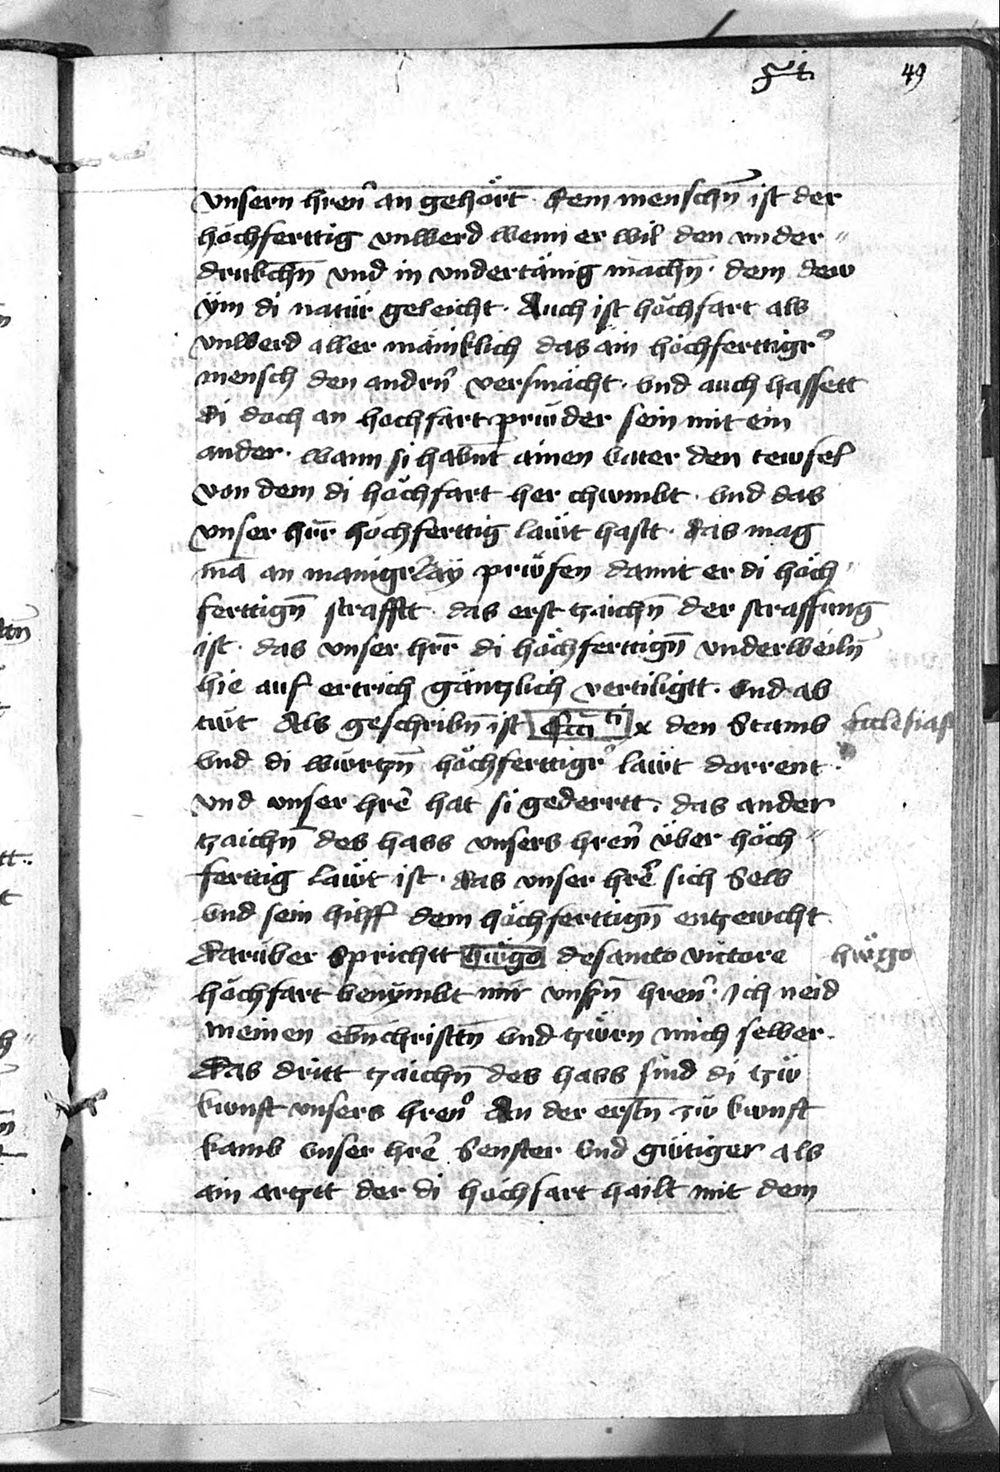 49
vnsern hren̄ an gehört · Dem menschn̄ ist der
höchferttig vnwerd wenn er wil den vnder„
drukchn̄ vnd in vndertänig machn̄ · dem dew
ÿm di natur geleicht · Auch ist höchfart als
vnwerd aller mäniklich das ain höchferttigr̄
mensch den andrn̄ versmächt · vnd auch hassett
Di doch an hochfart prüder sein mit ein
ander · wann si habnt ainen vater den tewfel
von dem di höchfart her chwmbt · vnd das
vnser hrr̄ höchferttig läwt hasst · Das mag
mā an manigrläy prüefen damit er di höch„
ferttign̄ strafftt · das erst tzaichn̄ der straffung
ist · das vnser hrr̄ di höchferttign̄ vnderweiln̄
hie auf ertrich gäntzlich vertiligtt · vnd ab
tüt Als geschribn̄ ist Ecc̄i ti x den Stamb
Ecclesias
vnd di würtzn̄ höchferttigr̄ läwt dorrent ·
vnd vnser hrē hat si gederrtt · das ander
tzaichn̄ des hass vnsers hren̄ über höch„
ferttig läwt ist · das vnser hrē sich Selb
vnd sein hilff dem höchferttign̄ entzewcht
Darüber Sprichtt hwgo desancto victore
hwgo
höchfart benÿmbt mir vnsn̄ hren̄ · Ich neid
meinen ebnchristn̄ vnd tzürn mich selber ·
Das dritt tzaichn̄ des hass sind di tzw
kwnft vnsers hren̄ An der erstn̄ zw kwnft
kamb vnser hrē Senfter vnd gütiger als
ain artztt der di hochfart hailt mit dem